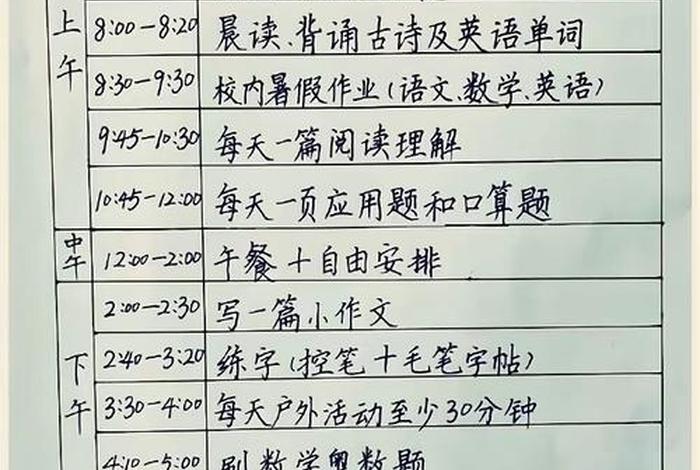 上午
8:00-8:20 晨读、背诵古诗及英语单词
8:30-9:30 校内暑假作业(语文、数学、英语)
9:45-10:30 每天一篇阅读理解
10:45-12:00 每天一页应用题和口算题
中午
12:00-2:00 午餐+自由安排
下午
2:00-2:30 写一篇小作文
2:40-3:20 练字(控笔+毛笔字帖)
3:30-4:00 每天户外活动至少30分钟
4:10-5:00 刷数学奥数题